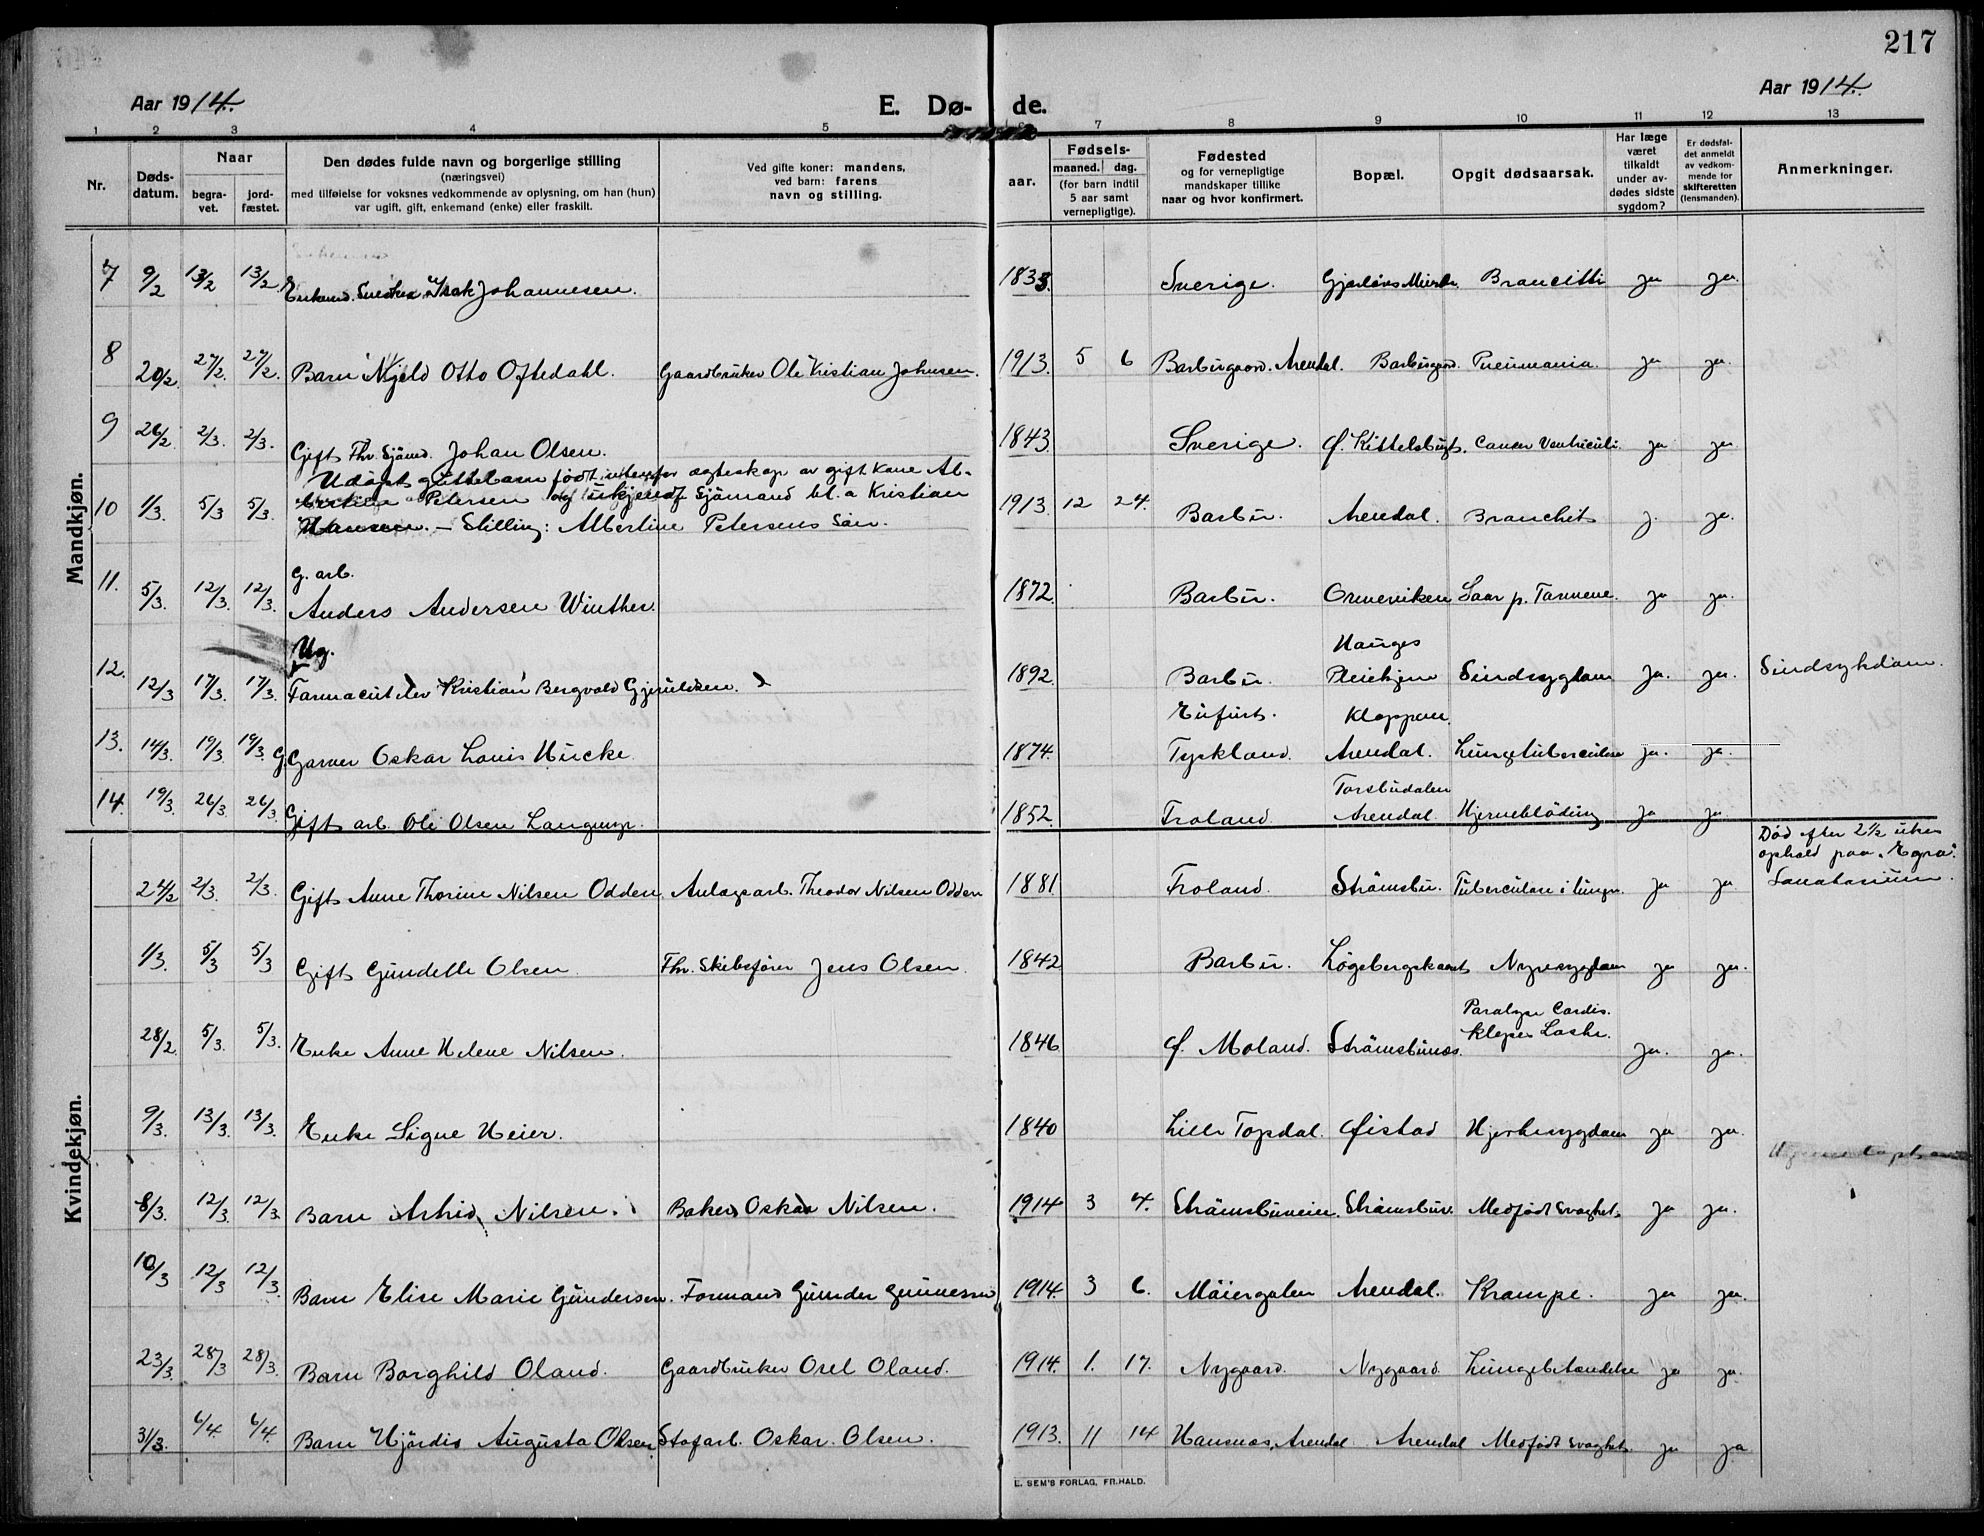 217
Aar 1914.
E. Dø- de.
Aar 1914.
1 2 3 4 5 7 8 9 10 11 12 13
Nr.
Døds-
datum.
Naar
begra-
vet.
jord-
fæstet.
Den dødes fulde navn og borgerlige stilling
(næringsvei)
med tilføielse for voksnes vedkommende av oplysning, om han (hun)
var ugift, gift, enkemand (enke) eller fraskilt.
Ved gifte koner: mandens,
ved barn: farens
navn og stilling.
aar.
Fødsels-
maaned. dag.
(for barn indtil
5 aar samt
vernepligtige).
Fødested
og for vernepligtige
mandskaper tillike
naar og hvor konfirmert.
Bopæl.
Opgit dødsaarsak.
Har læge
været
tilkaldt
under av-
dødes sidste
sygdom?
Er dødsfal-
det anmeldt
av vedkom-
mende for
skifteretten
(lensmanden).
Anmerkninger.
Mandkjøn.
7 9/2 13/2 13/2 Enkemd. Isak Johannesen. 1833. Sverige. ja ja.
8 20/2 27/2. 27/2. Barn Njeld Otto Oftedahl. Gaardbruker Ole Kristian Johnsen. 1913. 5 6 Barbugaard. Arendal. Barbugaard. Pneumania. ja ja.
9 26/2 2/3. 2/3. Gift Fhv. Sjömd. Johan Olsen. 1843. Sverige. Ø. Kittelsbugt. Cancer Ventriculi. ja ja.
Udöpt guttebarn født utenfor ægteskap av gift kone Al-
10 1/3. 5/3 5/3. bertine Petersen og Sjömand bl. a Kristian 1913. 12 24. Barbu. Arendal. Bronchit j. ja.
Hansen. – Stilling: Albertine Petersens Sön.
G. arb.
11. 5/3. 12/3. 12/3. Anders Andersen Winther. 1872. Barbu. Ormeviken Saar p. Tarmene. ja ja.
Ug. Hauges
12. 12/3 17/3. 17/3. Farmaceut elev Kristian Bergvald Gjeruldsen. 1892. Barbu. Pleiehjem Sindsygdom Ja. ja. Sindsykdom.
Eufurt. Kloppen.
13. 14/3. 19/3. 19/3. G. Garver Oskar Louis Hucke. 1874. Tyskland. Arendal. Lungetuberculose ja. ja.
Torsbudalen
14. 19/3. 26/3. 26/3. Gift arb. Ole Olsen 1852. Froland. Arendal. Hjerneblödning ja ja.
Kvindekjøn.
Død efter 2½ ukes
ophold paa „Egra“.
24/2 2/3. 2/3. Gift Anne Thorine Nilsen Odden. Anlægsarb. Theodor Nilsen Odden 1881. Froland. Strømsbu. Tuberculose i lunger ja ja. Sanatorium.
1/3. 5/3 5/3 Gift Gundelle Olsen. Fhv. Skibsfører Jens Olsen. 1842. Barbu. Løgebergskaaret Nyresygdom ja ja.
Paralyse Cordis.
28/2. 5/3. 5/3. Enke Anne Helene Nilsen. 1846. Ø. Moland. Strömsbunes. ja. ja.
9/3. 13/3. 13/3. Enke Signe Heier. 1840 Lille Topdal. Øistad Hjertesygdom ja ja.
8/3. 12/3. 12/3. Barn Nilsen. Baker Oskar Nilsen. 1914 3 4. Strömsbuveien. Strömsbuv. Medfødt svaghet. ja ja.
10/3 12/3 12/3. Barn Elise Marie Gundersen. Formand Gunder Gunnesen 1914. 3 6. Möiergaten Arendal. Krampe. ja ja.
23/3. 28/3 28/3. Barn Borghild Oland. Gaardbruker Osel Oland. 1914. 1. 17. Nygaard. Nygaard. Lungebetændelse ja ja.
31/3. 6/4. 6/4. Barn Hjördis Augusta Olsen Stofarb. Oskar. Olsen. 1913. 11 14 Hansnes, Arendal. Arendal Medfødt svaghet. ja ja
E. SEM'S FORLAG, FR.HALD.